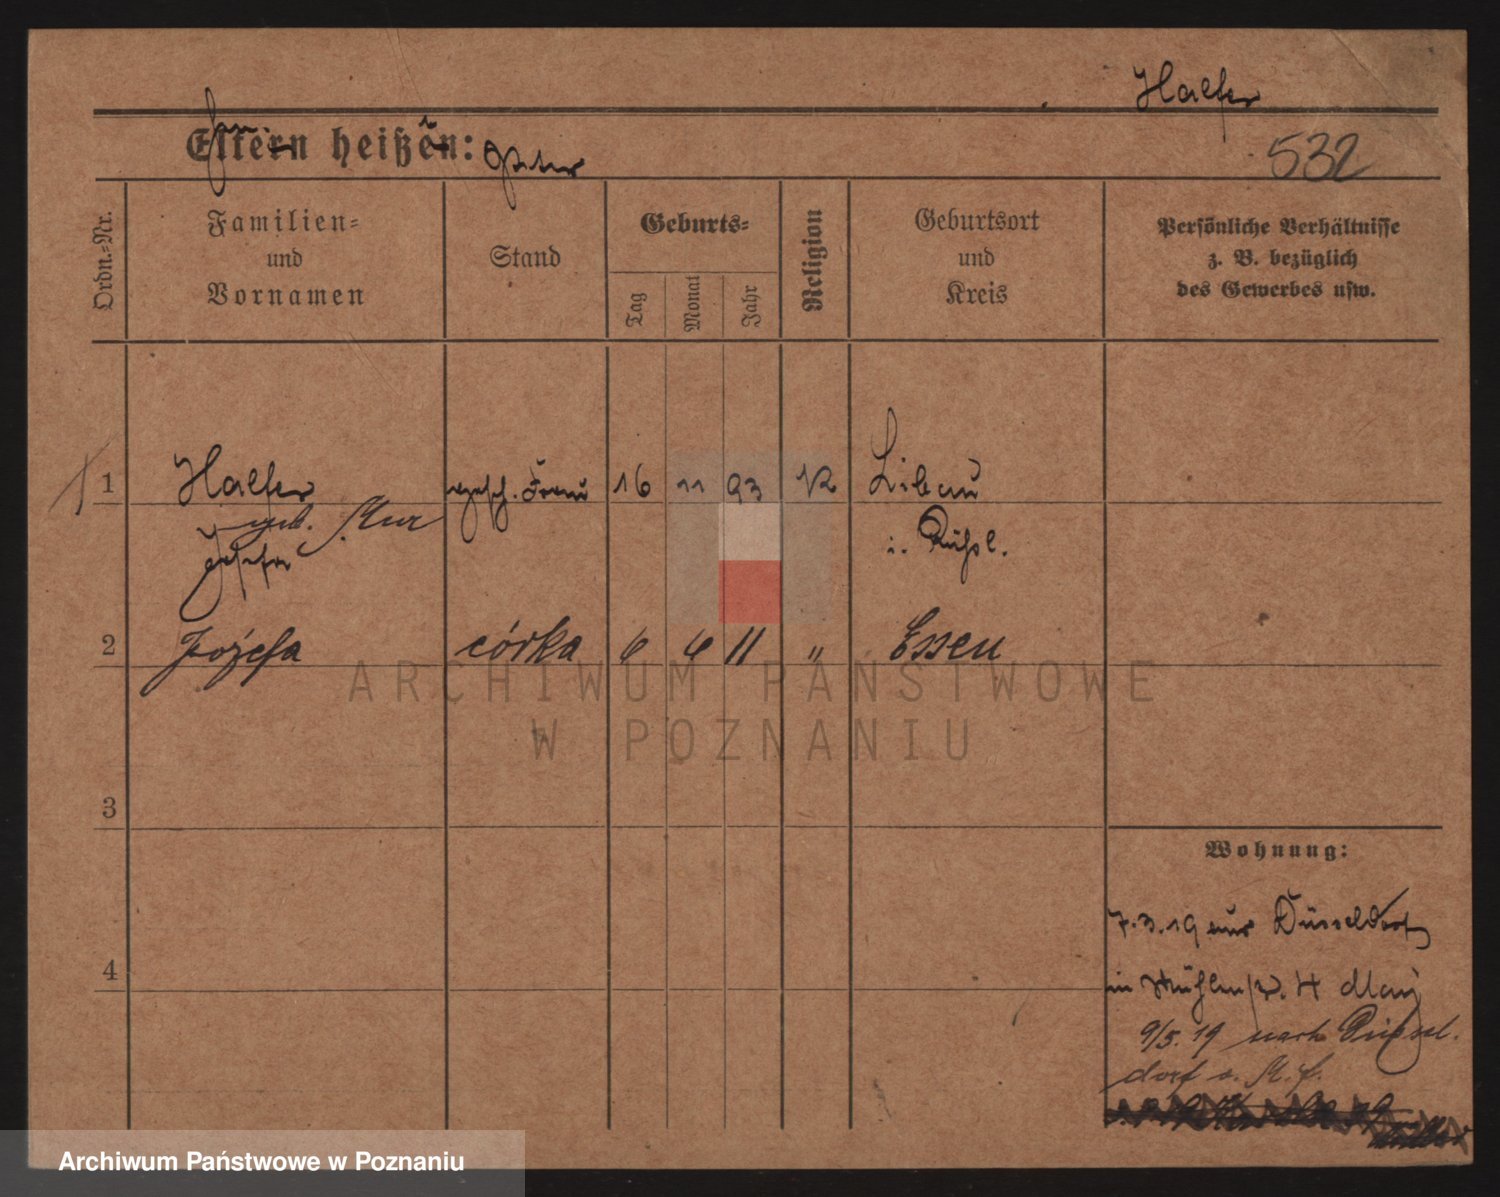 Halfer
Eltern heißen: Peter
532
Ordn.-Nr.
Familien-
und
Vornamen
Stand
Geburts-
Tag
Monat
Jahr
Religion
Geburtsort
und
Kreis
Persönliche Verhältnisse
z. B. bezüglich
des Gewerbes usw.
1 Halfer gesch. Frau 16 11 93 K Libau
geb.
Josefa i. Rußl.
2 Józefa córka 6 6 11 " Essen
ARCHIWUM PAŃSTWOWE
W POZNANIU
3
Wohnung:
4
7.3.19 aus Düsseldorf
in Mühlenstr. 4
9/5. 19 nach Düssel-
dorf
Archiwum Państwowe w Poznaniu